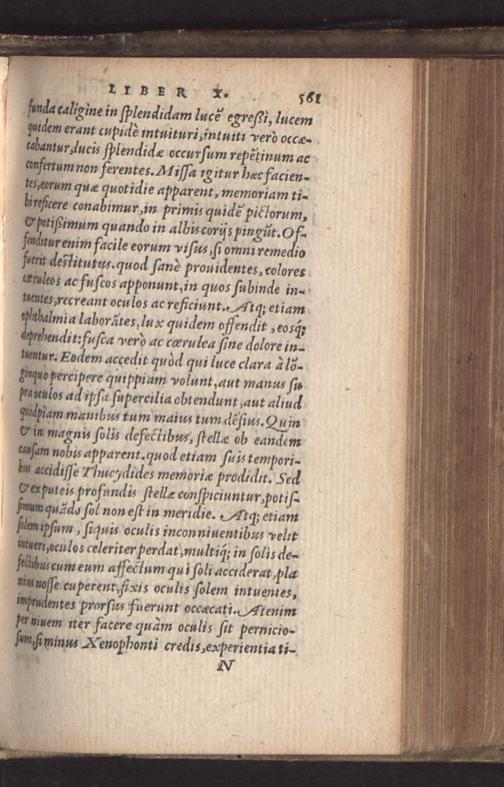 LIBER X. 561
funda caligine in splendidam lucē egreßi, lucem
quidem erant cupidè intuituri, intuiti verò occæ-
cabantur, lucis splendidæ occursum repētinum ac
confertum non ferentes. Missa igitur hæc facien-
tes, eorum quæ quotidie apparent, memoriam ti-
bi reficere conabimur, in primis quidē pictorum,
& potißimum quando in albis corijs pingūt. Of-
fenditur enim facile eorum visus, si omni remedio
fuerit destitutus. quod sanè prouidentes, colores
cæruleos ac fuscos apponunt, in quos subinde in-
tuentes, recreant oculos ac reficiunt. Atq; etiam
ophthalmia laborātes, lux quidem offendit, eosq́;
deprehendit: fusca verò ac cœrulea sine dolore in-
tuentur. Eodem accedit quòd qui luce clara à lō-
ginquo percipere quippiam volunt, aut manus su
pra oculos ad ipsa supercilia obtendunt, aut aliud
quidpiam manibus tum maius tum dēsius. Quin
& in magnis solis defectibus, stellæ ob eandem
causam nobis apparent. quod etiam suis tempori-
bus accidisse Thucydides memoriæ prodidit. Sed
& ex puteis profundis stellæ conspiciuntur, potis-
simum quādo sol non est in meridie. Atq; etiam
solem ipsum, si quis oculis inconniuentibus velit
intueri, oculos celeriter perdat, multiq́; in solis de-
fectibus cum eum affectum qui soli acciderat, pla
nius nosse cuperent, fixis oculis solem intuentes,
imprudentes prorsus fuerunt occæcati. Atenim
per niuem iter facere quàm oculis sit pernicio-
sum, si minus Xenophonti credis, experientia ti-
N